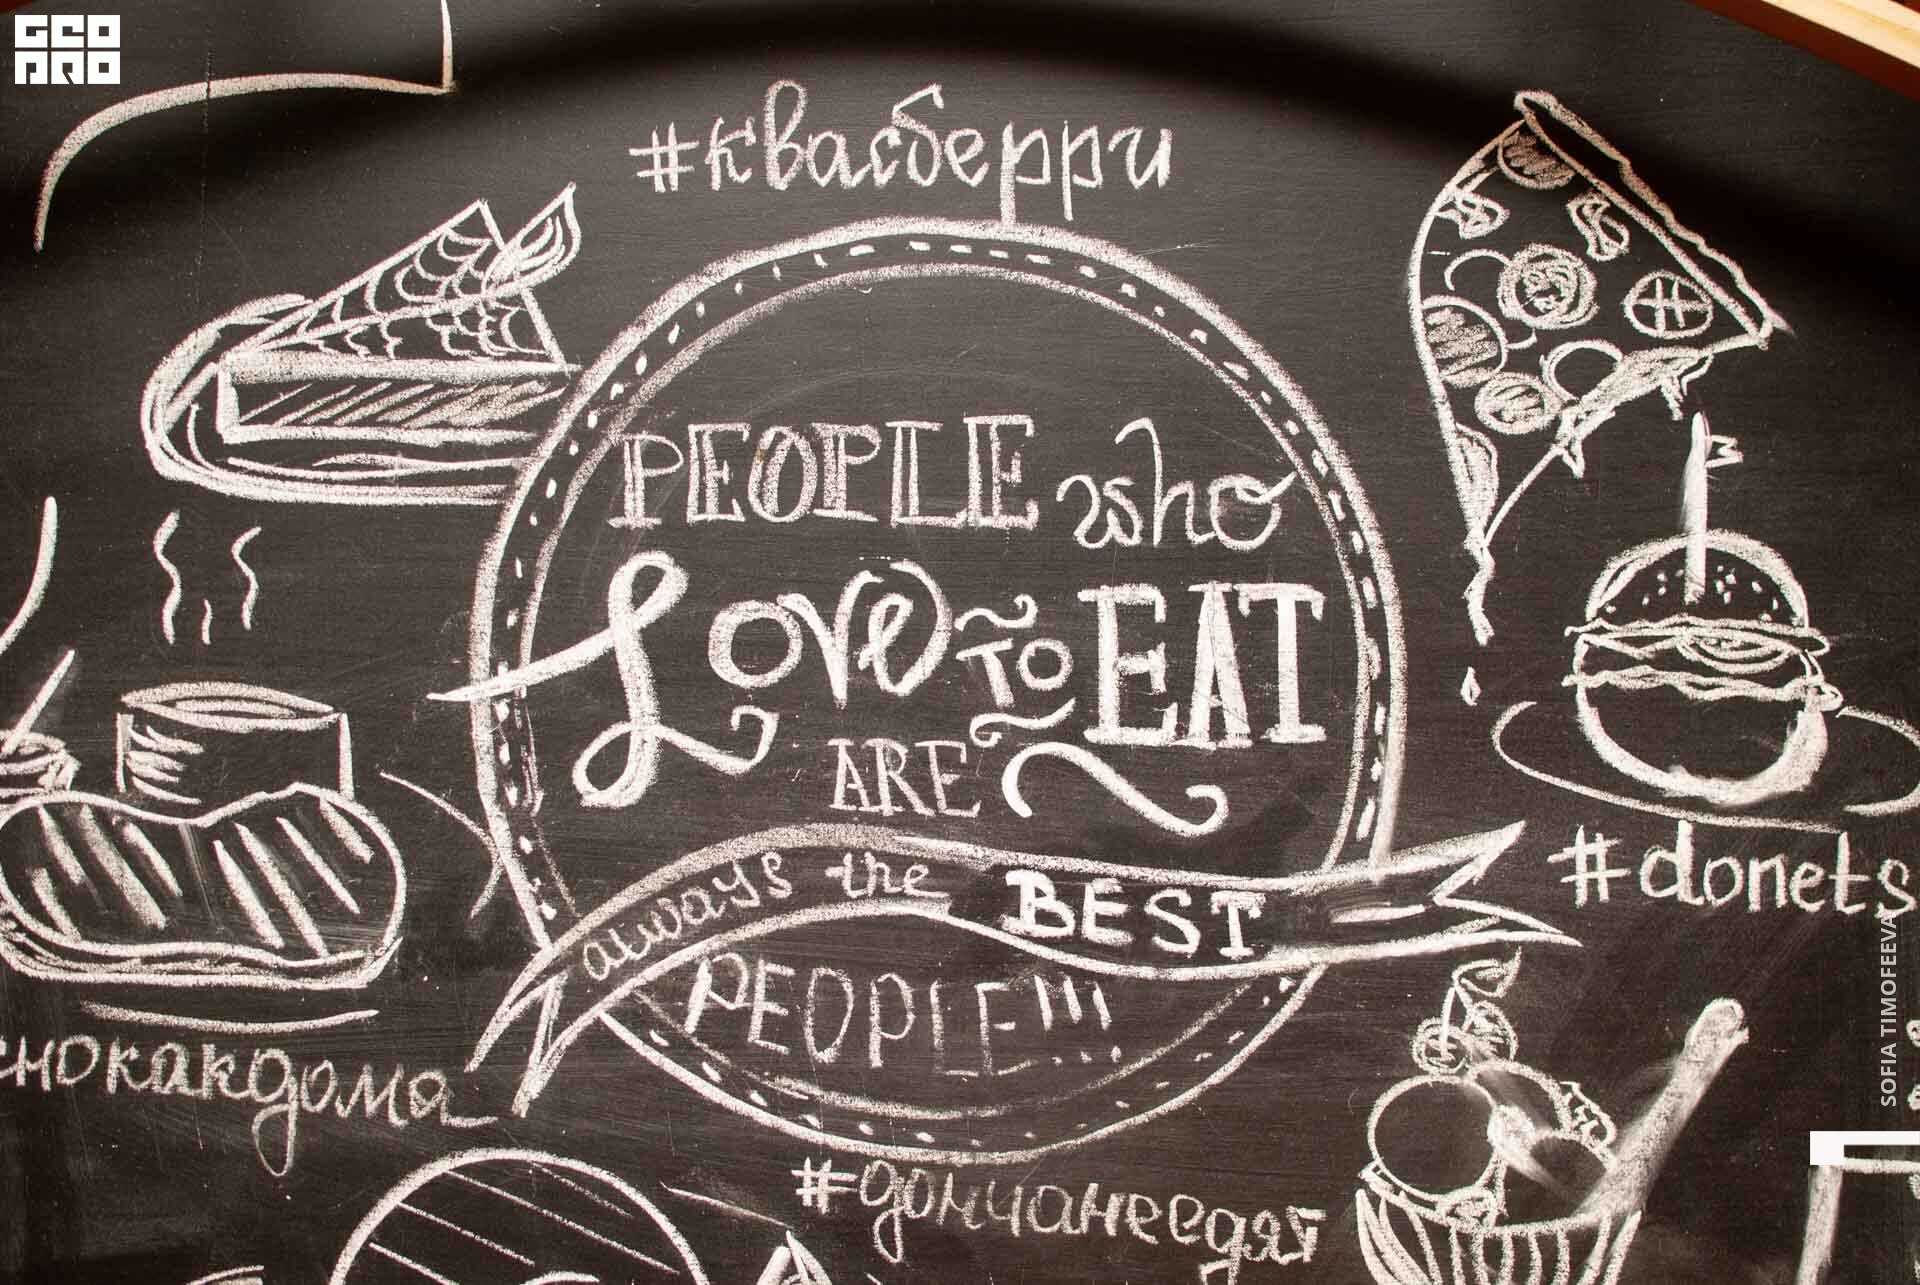 GEO
PRO
#квасберри
PEOPLE who
Love TO EAT
ARE
always the BEST
PEOPLE!!!
#donets
снокакдома
#дончанеедят
SOFIA TIMOFEEVA